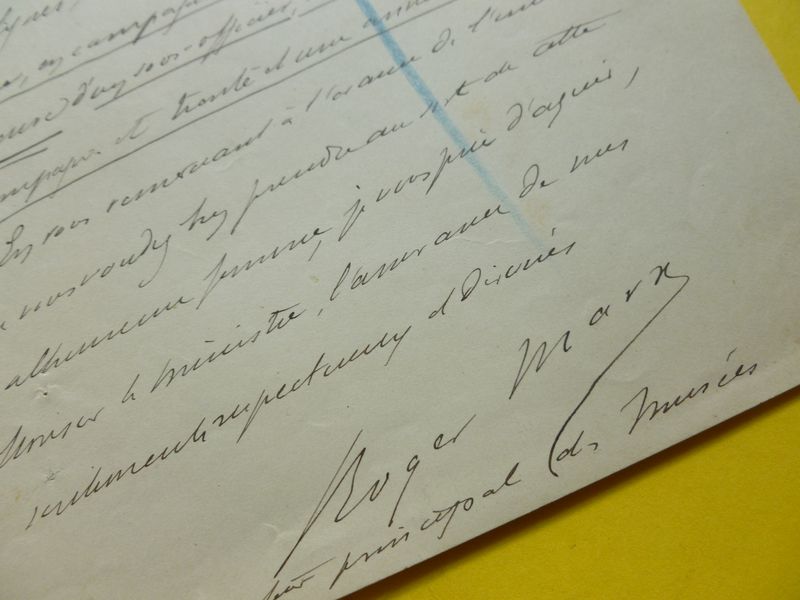 en campagne
d'un sous-officier,
campagne et trente et une année
En vous remerciant à l'avance de l'int
vous voudrez bien prendre au sort de cette
malheureuse femme, je vous prie d'agréer,
Monsieur le Ministre, l'assurance de mes
sentiments respectueux et dévoués
Roger Marx
principal des Musées